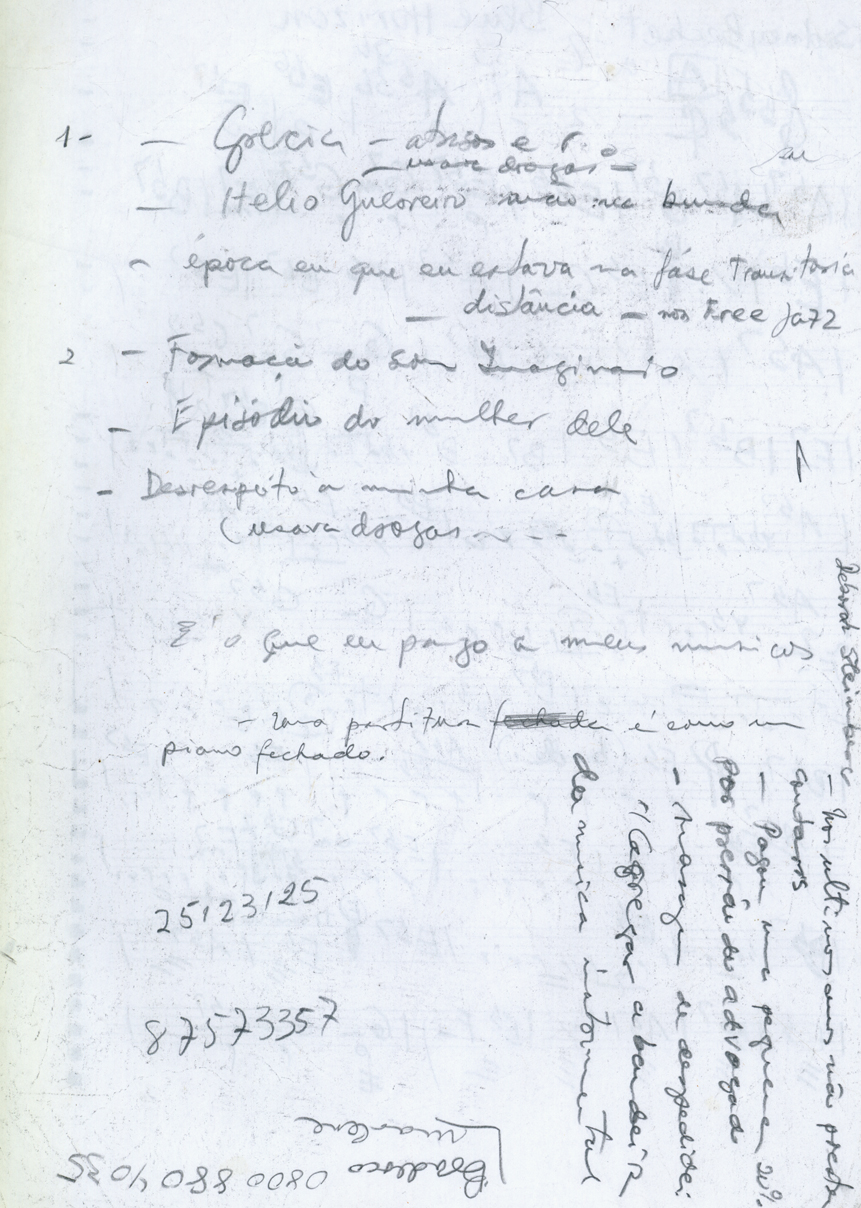 1-
— Grécia — atrisos e r.
— usava drogas —
— Helio Gueoreiro mão na bunda
- época em que eu estava na fase Transitoria
— distância — nos Free Jazz
2 - Formaçã do Som Imaginario
- Episódio do mulher dele
- Desrespeito a minha casa
(usava drogas ...
E' o que eu pago a meus musicos
- uma partitura fechada é como um
piano fechado.
25123125
87573357
Deborah Steinberg
- nos ultimos anos não prestou
contas
- Pagou me pequena 20%
por pressão do advogado
- mensagem de despedida:
"Carregar a bandeira
da musica instrumental
Marlene
Bradesco 0800 880 4035